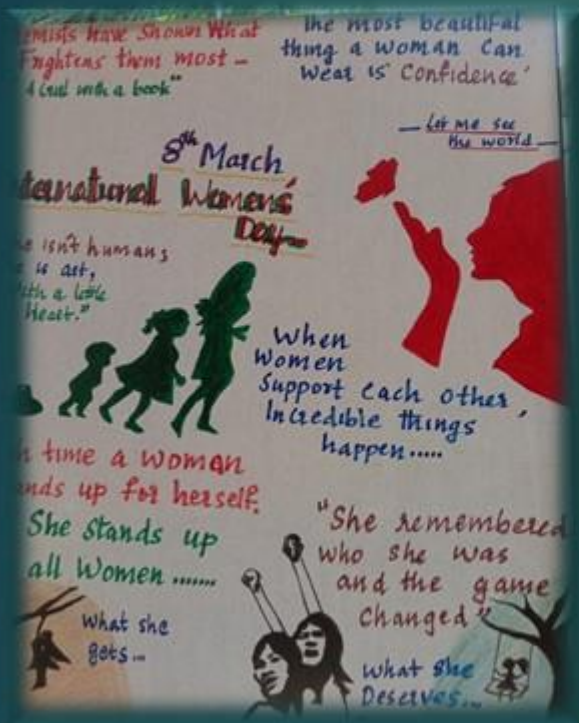 emists have Shown What
Frightens them most –
A Girl with a book"
The most beautiful
thing a woman Can
Wear is 'Confidence'
— Let me see
the world —
8th March
International Womens'
Day
e isn't humans
e is art,
ith a little
Heart."
When
Women
Support Each Other,
Incredible things
happen.....
h time a woman
ands up for herself,
She stands up
all Women .......
"She remembered
who she was
and the game
Changed"
What she
gets...
What she
Deserves...